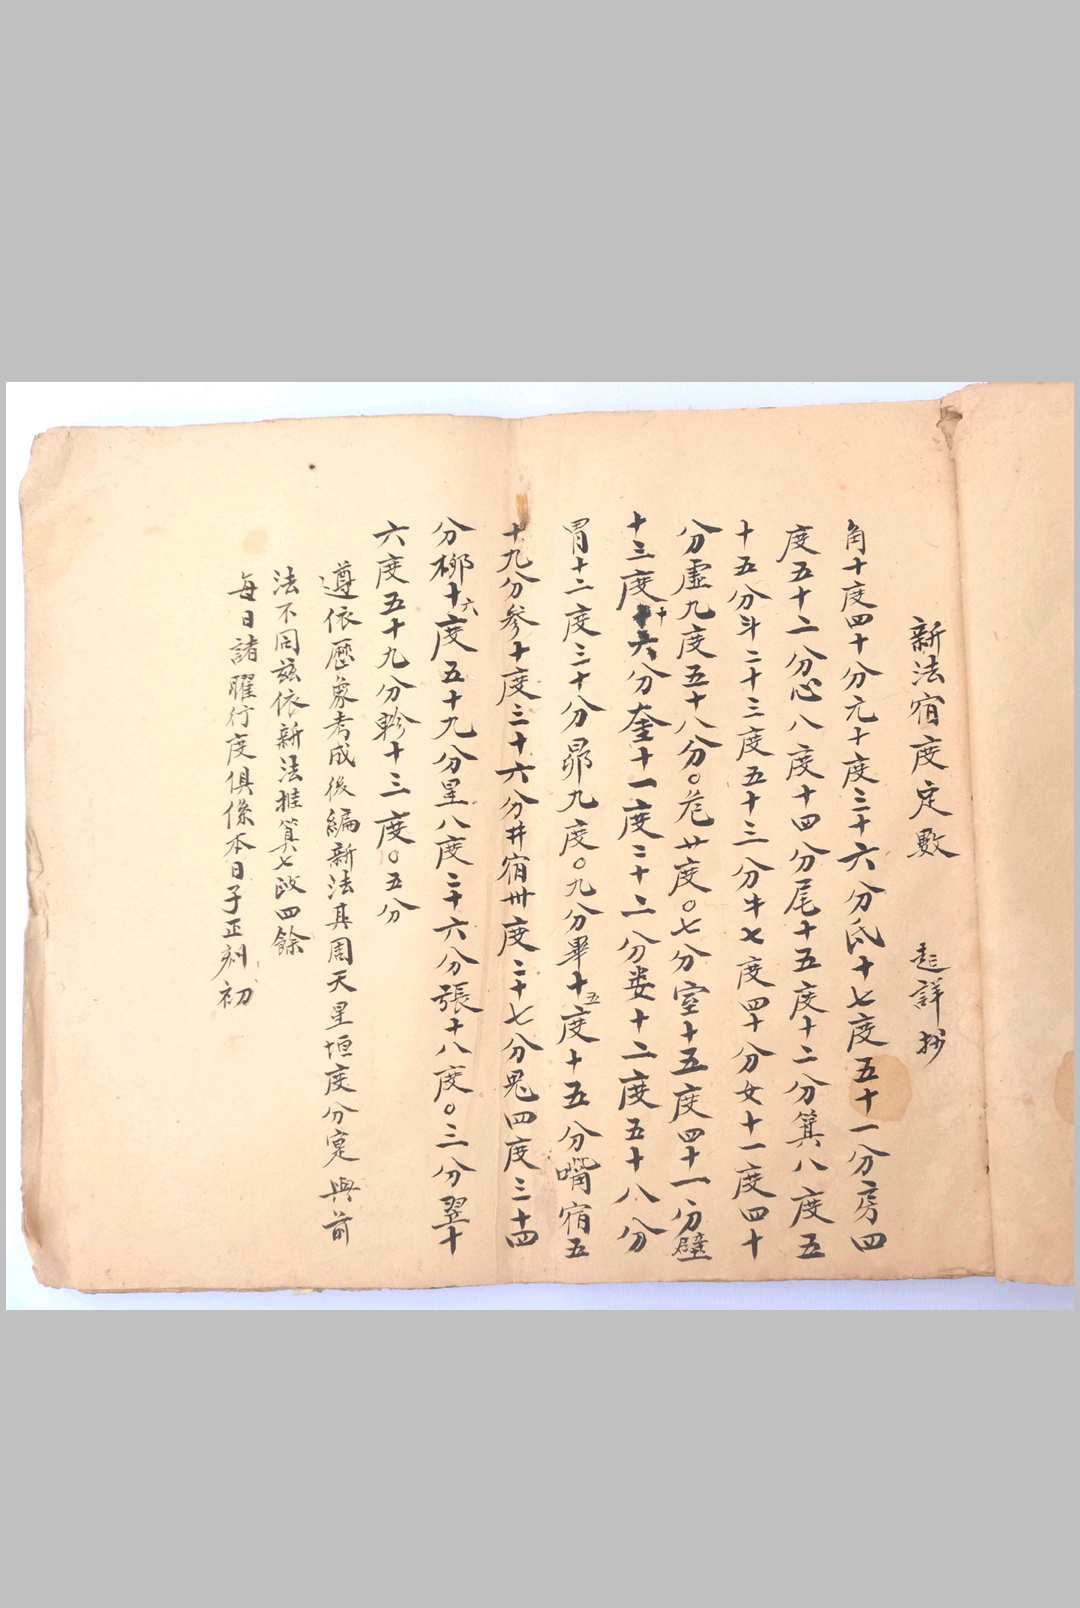 新法宿度定數 起詳抄
角十度四十分亢十度三十六分氐十七度五十一分房四
度五十二分心八度十四分尾十五度十二分箕八度五
十五分斗二十三度五十三分牛七度四十分女十一度四十
分虛九度五十八分○危廿度○七分室十五度四十一分壁
十三度十六分奎十一度二十二分娄十二度五十八分
胃十二度三十分昴九度○九分畢十五度十五分嘴宿五
十九分参十度三十六分井宿卅度二十七分鬼四度三十四
分柳十六度五十九分星八度二十六分張十八度○三分翌十
六度五十九分軫十三度○五分
遵依曆象考成後編新法其周天星垣度分寔與前
法不同兹依新法推算七政四餘
每日諸曜行度俱係本日子正刻初